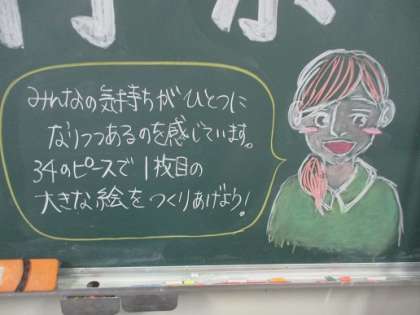 みんなの気持ちがひとつに
なりつつあるのを感じています。
34のピースで1枚目の
大きな絵をつくりあげよう!